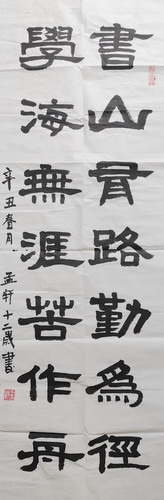 書山有路勤為徑
學海無涯苦作舟
辛丑春月孟軒十二歲書